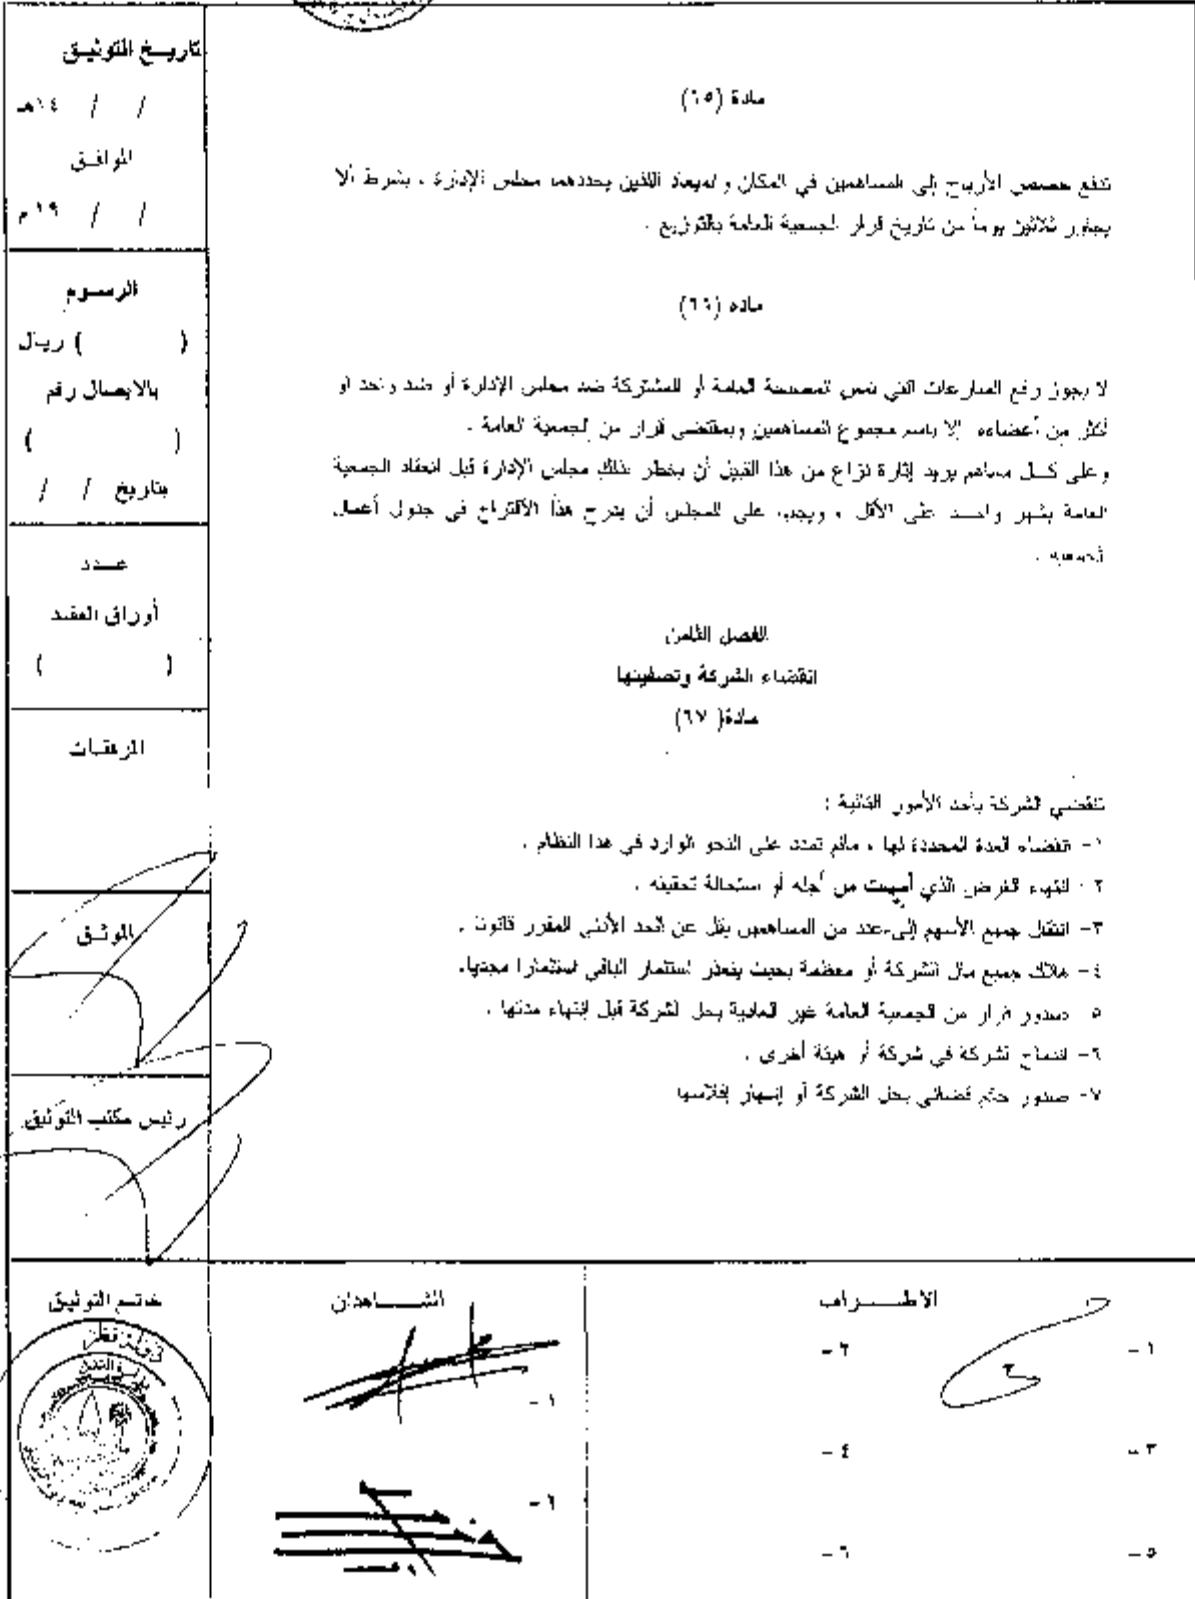 مادة (٦٥)
تدفع حصص الأرباح إلى المساهمين في المكان والميعاد اللذين يحددهما مجلس الإدارة ، بشرط ألا
يجاوز ثلاثين يوماً من تاريخ قرار الجمعية العامة بالتوزيع .
مادة (٦٦)
لا يجوز رفع المنازعات التي تمس المصلحة العامة أو المشتركة ضد مجلس الإدارة أو ضد واحد أو
أكثر من أعضاءه إلا باسم مجموع المساهمين وبمقتضى قرار من الجمعية العامة .
وعلى كل مساهم يريد إثارة نزاع من هذا القبيل أن يخطر بذلك مجلس الإدارة قبل انعقاد الجمعية
العامة بشهر واحد على الأقل ، ويجب على المجلس أن يدرج هذا الاقتراح في جدول أعمال
الجمعية .
الفصل الثامن
انقضاء الشركة وتصفيتها
مادة( ٦٧)
تنقضي الشركة بأحد الأمور التالية :
١- انقضاء المدة المحددة لها ، مالم تمدد على النحو الوارد في هذا النظام .
٢- انتهاء الغرض الذي أسست من أجله أو استحالة تحقيقه .
٣- انتقال جميع الأسهم إلى عدد من المساهمين يقل عن الحد الأدنى المقرر قانونا .
٤- هلاك جميع مال الشركة أو معظمة بحيث يتعذر استثمار الباقي استثمارا مجديا.
٥- صدور قرار من الجمعية العامة غير العادية بحل الشركة قبل إنتهاء مدتها .
٦- اندماج الشركة في شركة أو هيئة أخرى .
٧- صدور حكم قضائي بحل الشركة أو إشهار إفلاسها
تاريخ التوثيق
/ / ١٤هـ
الموافق
/ / ١٩م
الرسوم
( ) ريال
بالايصال رقم
( )
بتاريخ / /
عدد
أوراق العقد
( )
المرفقات
الموثق
رئيس مكتب التوثيق
خاتم التوثيق
دولة قطر
الشاهدان
١ -
٢ -
الاطراف
١ -
٢ -
٣ -
٤ -
٥ -
٦ -